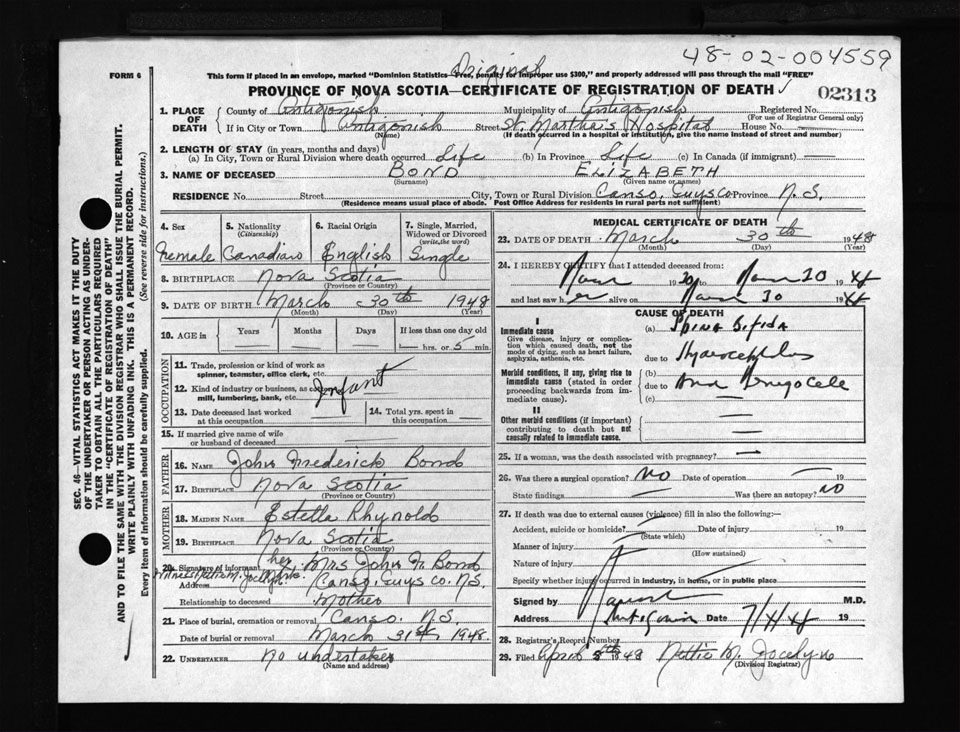 48-02-004559
Original
FORM 6
This form if placed in an envelope, marked "Dominion Statistics—Free, penalty for improper use $300," and properly addressed will pass through the mail "FREE"
PROVINCE OF NOVA SCOTIA—CERTIFICATE OF REGISTRATION OF DEATH
02313
1. PLACE OF DEATH
County of Antigonish Municipality of Antigonish Registered No.
(For use of Registrar General only)
If in City or Town Antigonish Street St. Martha's Hospital House No. —
(Name) (If death occurred in a hospital or institution, give the name instead of street and number)
2. LENGTH OF STAY (in years, months and days)
(a) In City, Town or Rural Division where death occurred Life (b) In Province Life (c) In Canada (if immigrant) —
3. NAME OF DECEASED BOND ELIZABETH
(Surname) (Given name or names)
RESIDENCE No. Street City, Town or Rural Division Canso, Guys Co Province N.S.
(Residence means usual place of abode. Post Office Address for residents in rural parts not sufficient)
SEC. 46—VITAL STATISTICS ACT MAKES IT THE DUTY
OF THE UNDERTAKER OR PERSON ACTING AS UNDER-
TAKER TO OBTAIN ALL THE PARTICULARS REQUIRED
IN THE "CERTIFICATE OF REGISTRATION OF DEATH"
AND TO FILE THE SAME WITH THE DIVISION REGISTRAR WHO SHALL ISSUE THE BURIAL PERMIT.
WRITE PLAINLY WITH UNFADING INK. THIS IS A PERMANENT RECORD.
Every item of Information should be carefully supplied. (See reverse side for instructions.)
4. Sex 5. Nationality 6. Racial Origin 7. Single, Married,
(Citizenship) Widowed or Divorced
(write the word)
Female Canadian English Single
8. BIRTHPLACE Nova Scotia
(Province or Country)
9. DATE OF BIRTH March 30th 1948
(Month) (Day) (Year)
10. AGE in Years Months Days If less than one day old
— hrs. or 5 min.
OCCUPATION
11. Trade, profession or kind of work as
spinner, teamster, office clerk, etc.
12. Kind of industry or business, as
mill, lumbering, bank, etc. Infant
13. Date deceased last worked
at this occupation
14. Total yrs. spent in
this occupation
15. If married give name of wife
or husband of deceased
FATHER
16. NAME John Frederick Bond
17. BIRTHPLACE Nova Scotia
(Province or Country)
MOTHER
18. MAIDEN NAME Estella Rhynold
19. BIRTHPLACE Nova Scotia
(Province or Country)
20. Signature of informant her Mrs John F. Bond
Witness Nettie M. Jocelyn
Address Canso, Guys co. N.S.
Relationship to deceased Mother
21. Place of burial, cremation or removal Canso. N.S.
Date of burial or removal March 31st 1948.
22. UNDERTAKER No undertaker
(Name and address)
MEDICAL CERTIFICATE OF DEATH
23. DATE OF DEATH March 30th 1948
(Month) (Day) (Year)
24. I HEREBY CERTIFY that I attended deceased from:
and last saw her alive on
CAUSE OF DEATH
I
Immediate cause
Give disease, injury or complica-
tion which caused death, not the
mode of dying, such as heart failure,
asphyxia, asthenia, etc.
(a) Spina Bifida
due to Hydrocephalus
Morbid conditions, if any, giving rise to
immediate cause (stated in order
proceeding backwards from im-
mediate cause).
(b)
due to
(c) —
II
Other morbid conditions (if important)
contributing to death but not
causally related to immediate cause.
25. If a woman, was the death associated with pregnancy? —
26. Was there a surgical operation? No Date of operation 19
State findings — Was there an autopsy? no
27. If death was due to external causes (violence) fill in also the following:—
Accident, suicide or homicide? Date of injury 19
(State which)
Manner of injury
(How sustained)
Nature of injury
Specify whether injury occurred in industry, in home, or in public place
Signed by M.D.
Address Antigonish Date 19
28. Registrar's Record Number
29. Filed April 5th 1948 Nettie M. Jocelyn
(Division Registrar)